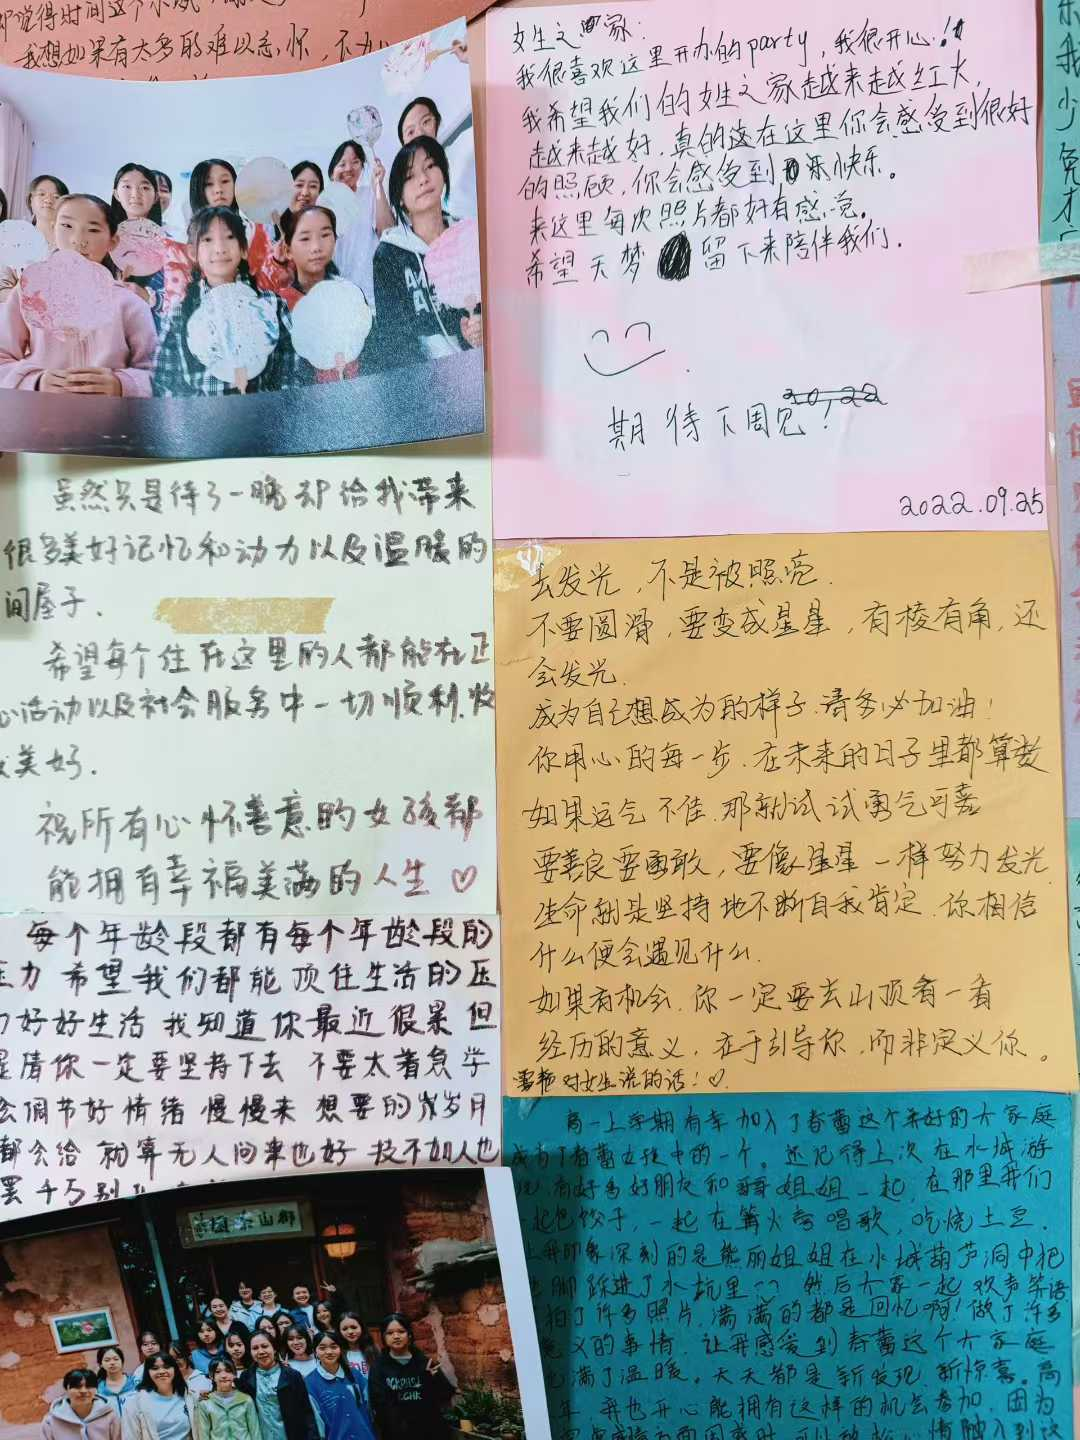 我想如果有太多的难以忘怀，不如
女生之家：
我很喜欢这里开办的party，我很开心！
我希望我们的女生之家越来越红火，
越来越好，真的这在这里你会感受到很好
的照顾，你会感受到快乐。
来这里每次照片都好有感觉。
希望天梦留下来陪伴我们．
期待下周见！
2022.09.25
虽然只是待了一晚却给我带来
很多美好记忆和动力以及温暖的
间屋子．
希望每个住在这里的人都能在正
心活动以及社会服务中一切顺利，收
美好．
祝所有心怀善意的女孩都
能拥有幸福美满的人生♡
去发光，不是被照亮．
不要圆滑，要变成星星，有棱有角，还
会发光．
成为自己想成为的样子．请务必加油！
你用心的每一步．在未来的日子里都算数
如果运气不佳．那就试试勇气可嘉
要善良要勇敢，要像星星一样努力发光．
生命就是坚持地不断自我肯定．你相信
什么便会遇见什么．
如果有机会．你一定要去山顶看一看
经历的意义，在于引导你，而非定义你。
对女生说的话！♡．
每个年龄段都有每个年龄段的
压力 希望我们都能顶住生活的压
力好好生活 我知道你最近很累 但
是请你一定要坚持下去 不要太着急 学
会调节好情绪 慢慢来 想要的岁月
都会给 就算无人问津也好 技不如人也
罢 千万别
高一上学期有幸加入了春蕾这个美好的大家庭
成为了春蕾女孩中的一个。还记得上次在水城游
玩，有好多好朋友和哥哥姐姐一起，在那里我们
一起包饺子，一起在篝火旁唱歌，吃烧土豆．
让我印象深刻的是熊丽姐姐在水城葫芦洞中把
脚踩进了水坑里 然后大家一起欢声笑语
拍了许多照片，满满的都是回忆啊！做了许多
意义的事情．让我感受到春蕾这个大家庭
充满了温暖。天天都是新发现，新惊喜。高
年，我也开心能拥有这样的机会参加，因为